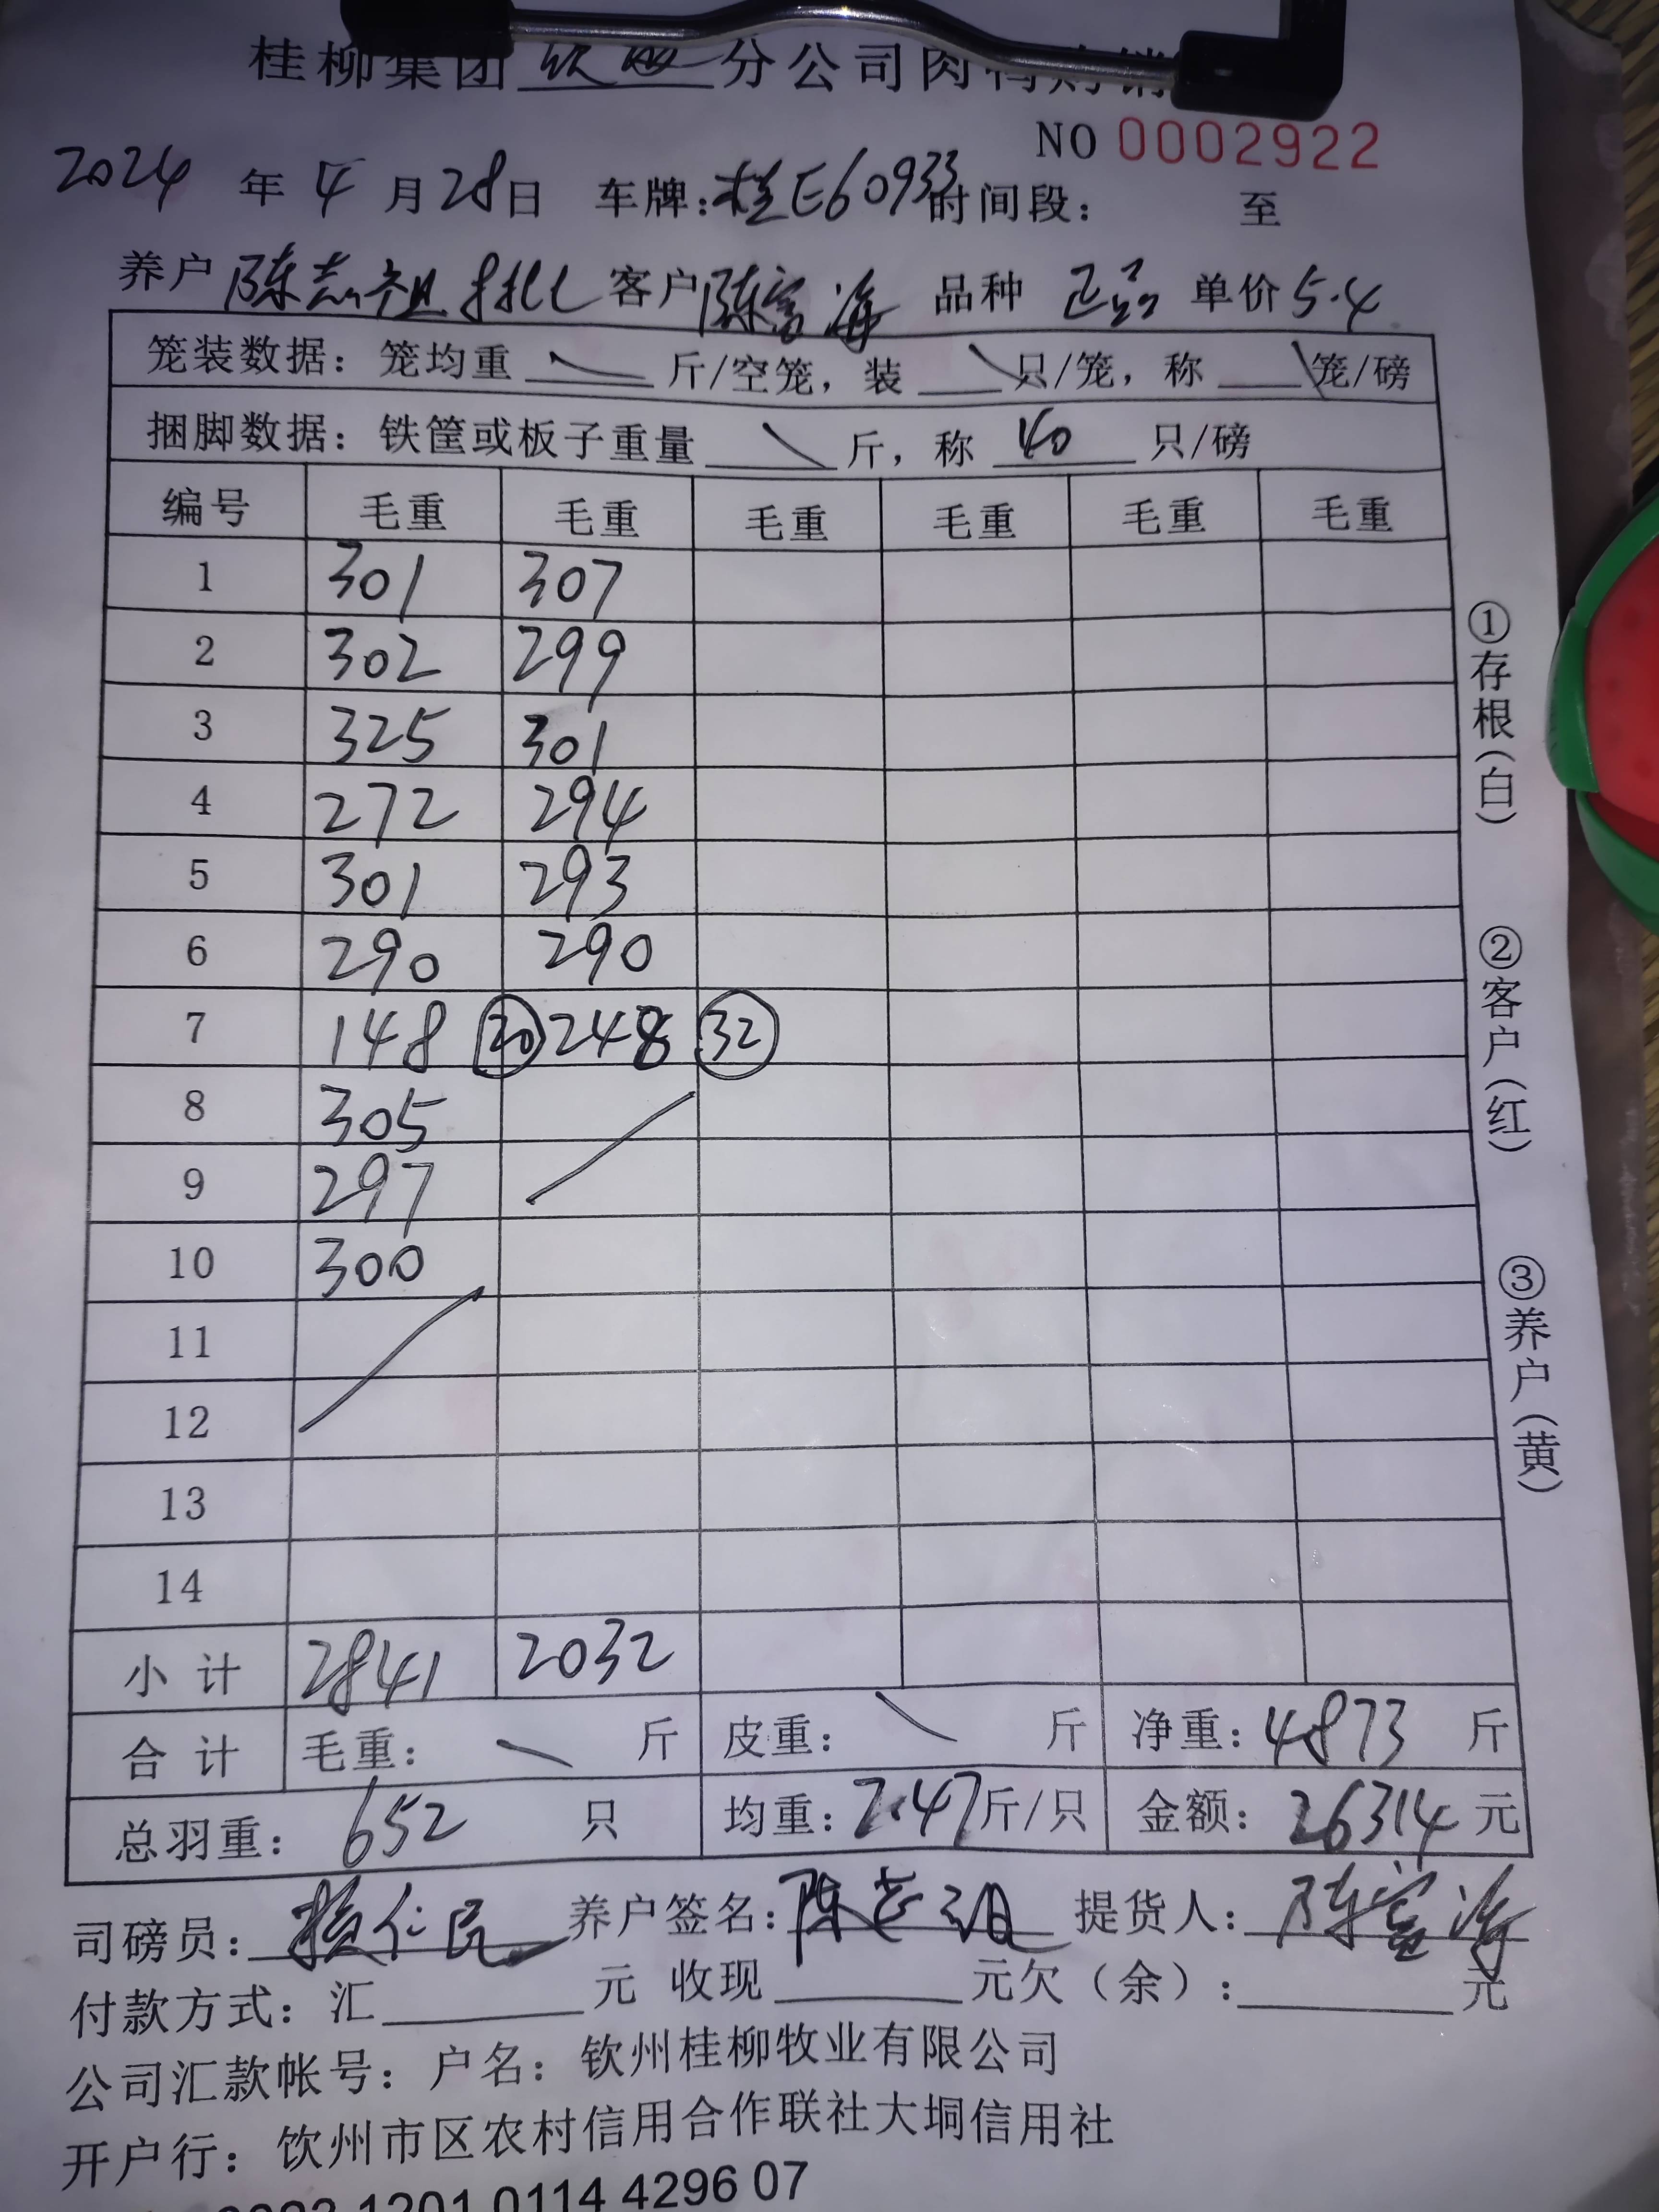 桂柳集团 钦州 分公司肉鸭购销
NO 0002922
2024 年 4 月 28 日 车牌:桂E60933 时间段: 至
养户 陈志祖 客户 陈富海 品种 正品 单价 5.4
笼装数据: 笼均重 \ 斤/空笼, 装 \ 只/笼, 称 \ 笼/磅
捆脚数据: 铁筐或板子重量 \ 斤, 称 40 只/磅
编号 毛重 毛重 毛重 毛重 毛重 毛重
1 301 307
2 302 299
3 325 301
4 272 294
5 301 293
6 290 290
7 148 20 248 32
8 305
9 297
10 300
11
12
13
14
小 计 2841 2032
合 计 毛重: \ 斤 皮重: \ 斤 净重: 4873 斤
总羽重: 652 只 均重: 7.47 斤/只 金额: 26314 元
司磅员: 养户签名: 陈志祖 提货人: 陈富海
付款方式: 汇 元 收现 元欠(余): 元
公司汇款帐号: 户名: 钦州桂柳牧业有限公司
开户行: 钦州市区农村信用合作联社大垌信用社
1201 0114 4296 07
①存根(白)
②客户(红)
③养户(黄)